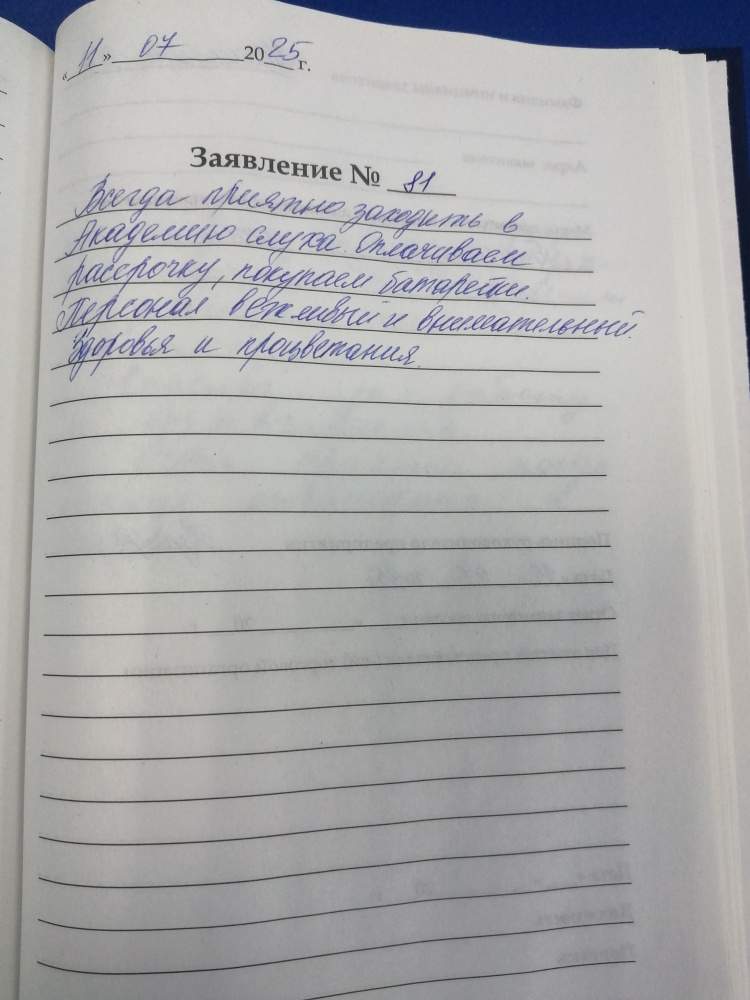 «11» 07 2025 г.
Заявление № 81
Всегда приятно заходить в
Академию слуха. Оплачиваем
рассрочку, покупаем батарейки.
Персонал вежливый и внимательный.
Здоровья и процветания.